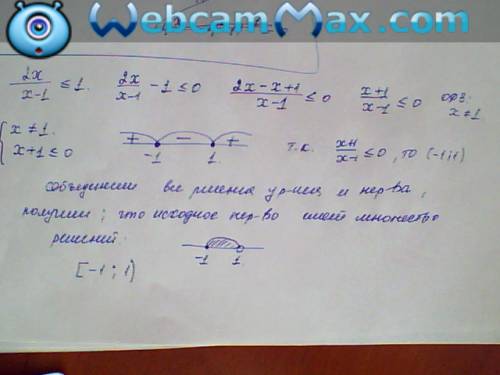 WebcamMax.com
2x/(x-1) ≤ 1. 2x/(x-1) - 1 ≤ 0 (2x-x+1)/(x-1) ≤ 0 (x+1)/(x-1) ≤ 0 ОДЗ: x ≠ 1
{ x ≠ 1.
x+1 ≤ 0
+ − +
-1 1.
т.к. (x+1)/(x-1) ≤ 0, то (-1;1)
объединим все решения ур-ния и нер-ва,
получим; что исходное нер-во имеет множество
решений:
-1 1.
[-1; 1)